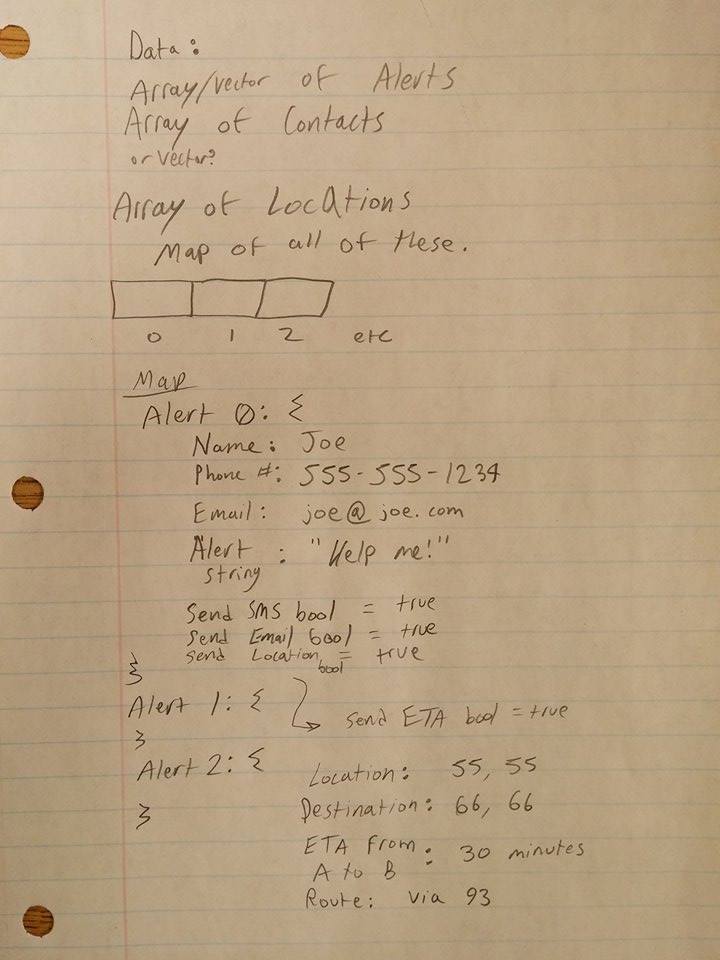 Data:
Array/vector of Alerts
Array of Contacts
or vector?
Array of Locations
Map of all of these.
0 1 2 etc
Map
Alert 0: {
Name: Joe
Phone #: 555-555-1234
Email: joe@joe.com
Alert string : "Help me!"
Send SMS bool = true
Send Email bool = true
send Location bool = true
}
Alert 1: {
send ETA bool = true
}
Alert 2: {
Location: 55, 55
Destination: 66, 66
}
ETA from A to B : 30 minutes
Route: via 93